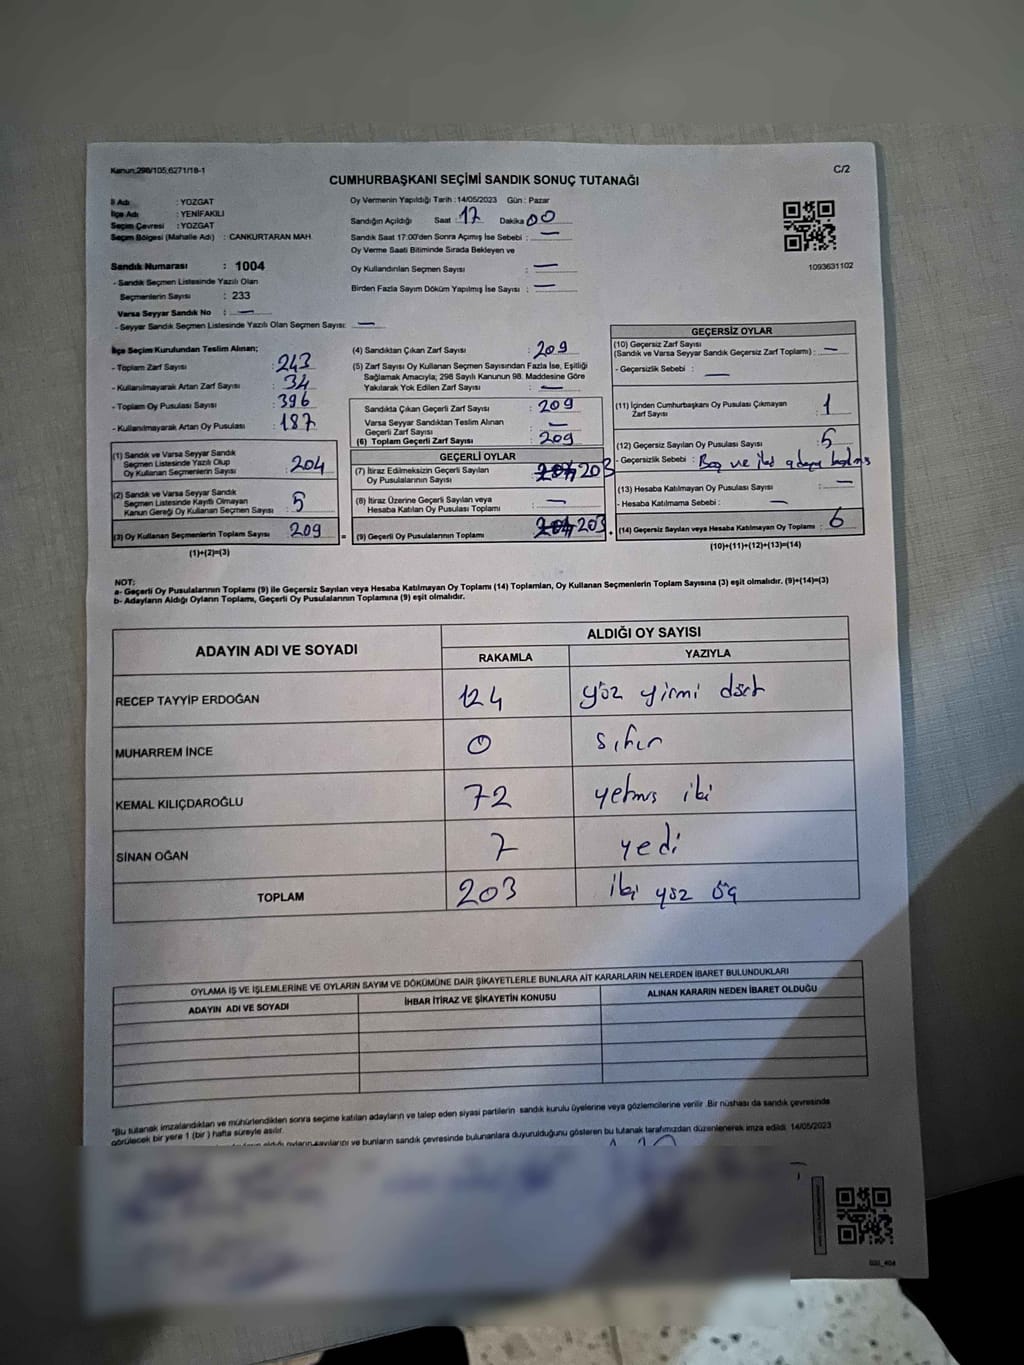 Kanun;298/105;6271/18-1
C/2
CUMHURBAŞKANI SEÇİMİ SANDIK SONUÇ TUTANAĞI
İl Adı : YOZGAT
İlçe Adı : YENİFAKILI
Seçim Çevresi : YOZGAT
Seçim Bölgesi (Mahalle Adı) : CANKURTARAN MAH.
Sandık Numarası : 1004
- Sandık Seçmen Listesinde Yazılı Olan
Seçmenlerin Sayısı : 233
Varsa Seyyar Sandık No : —
- Seyyar Sandık Seçmen Listesinde Yazılı Olan Seçmen Sayısı: —
Oy Vermenin Yapıldığı Tarih :14/05/2023 Gün : Pazar
Sandığın Açıldığı Saat 17 Dakika 00
Sandık Saat 17:00'den Sonra Açımış İse Sebebi : —
Oy Verme Saati Bitiminde Sırada Bekleyen ve
Oy Kullandırılan Seçmen Sayısı : —
Birden Fazla Sayım Döküm Yapılmış İse Sayısı : —
1093631102
İlçe Seçim Kurulundan Teslim Alınan;
- Toplam Zarf Sayısı : 243
- Kullanılmayarak Artan Zarf Sayısı : 34
- Toplam Oy Pusulası Sayısı : 396
- Kullanılmayarak Artan Oy Pusulası : 187
(1) Sandık ve Varsa Seyyar Sandık
Seçmen Listesinde Yazılı Olup
Oy Kullanan Seçmenlerin Sayısı : 204
(2) Sandık ve Varsa Seyyar Sandık
Seçmen Listesinde Kayıtlı Olmayan
Kanun Gereği Oy Kullanan Seçmen Sayısı : 5
(3) Oy Kullanan Seçmenlerin Toplam Sayısı : 209
(1)+(2)=(3)
(4) Sandıktan Çıkan Zarf Sayısı : 209
(5) Zarf Sayısı Oy Kullanan Seçmen Sayısından Fazla İse, Eşitliği
Sağlamak Amacıyla; 298 Sayılı Kanunun 98. Maddesine Göre
Yakılarak Yok Edilen Zarf Sayısı : —
Sandıkta Çıkan Geçerli Zarf Sayısı : 209
Varsa Seyyar Sandıktan Teslim Alınan
Geçerli Zarf Sayısı : —
(6) Toplam Geçerli Zarf Sayısı : 209
GEÇERLİ OYLAR
(7) İtiraz Edilmeksizin Geçerli Sayılan
Oy Pusulalarının Sayısı : 203
(8) İtiraz Üzerine Geçerli Sayılan veya
Hesaba Katılan Oy Pusulası Toplamı : —
= (9) Geçerli Oy Pusulalarının Toplamı : 203
GEÇERSİZ OYLAR
(10) Geçersiz Zarf Sayısı
(Sandık ve Varsa Seyyar Sandık Geçersiz Zarf Toplamı) : —
- Geçersizlik Sebebi : —
(11) İçinden Cumhurbaşkanı Oy Pusulası Çıkmayan
Zarf Sayısı : 1
(12) Geçersiz Sayılan Oy Pusulası Sayısı : 5
- Geçersizlik Sebebi : Boş ve iki adaya
(13) Hesaba Katılmayan Oy Pusulası Sayısı : —
- Hesaba Katılmama Sebebi : —
(14) Geçersiz Sayılan veya Hesaba Katılmayan Oy Toplamı : 6
(10)+(11)+(12)+(13)=(14)
NOT:
a- Geçerli Oy Pusulalarının Toplamı (9) ile Geçersiz Sayılan veya Hesaba Katılmayan Oy Toplamı (14) Toplamları, Oy Kullanan Seçmenlerin Toplam Sayısına (3) eşit olmalıdır. (9)+(14)=(3)
b- Adayların Aldığı Oyların Toplamı, Geçerli Oy Pusulalarının Toplamına (9) eşit olmalıdır.
ADAYIN ADI VE SOYADI
ALDIĞI OY SAYISI
RAKAMLA YAZIYLA
RECEP TAYYİP ERDOĞAN 124 yüz yirmi dört
MUHARREM İNCE 0 sıfır
KEMAL KILIÇDAROĞLU 72 yetmiş iki
SİNAN OĞAN 7 yedi
TOPLAM 203 iki yüz üç
OYLAMA İŞ VE İŞLEMLERİNE VE OYLARIN SAYIM VE DÖKÜMÜNE DAİR ŞİKAYETLERLE BUNLARA AİT KARARLARIN NELERDEN İBARET BULUNDUKLARI
ADAYIN ADI VE SOYADI İHBAR İTİRAZ VE ŞİKAYETİN KONUSU ALINAN KARARIN NEDEN İBARET OLDUĞU
*Bu tutanak imzalandıktan ve mühürlendikten sonra seçime katılan adayların ve talep eden siyasi partilerin sandık kurulu üyelerine veya gözlemcilerine verilir .Bir nüshası da sandık çevresinde
görülecek bir yere 1 (bir ) hafta süreyle asılır.
oyların sayılarını ve bunların sandık çevresinde bulunanlara duyurulduğunu gösteren bu tutanak tarafımızdan düzenlenerek imza edildi. 14/05/2023